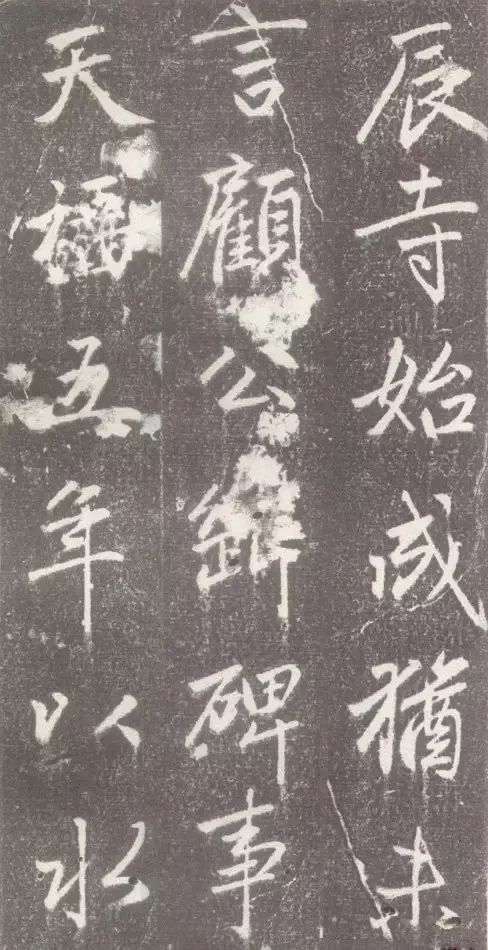 辰寺始成猶未
言顧公碑事
天五年以水